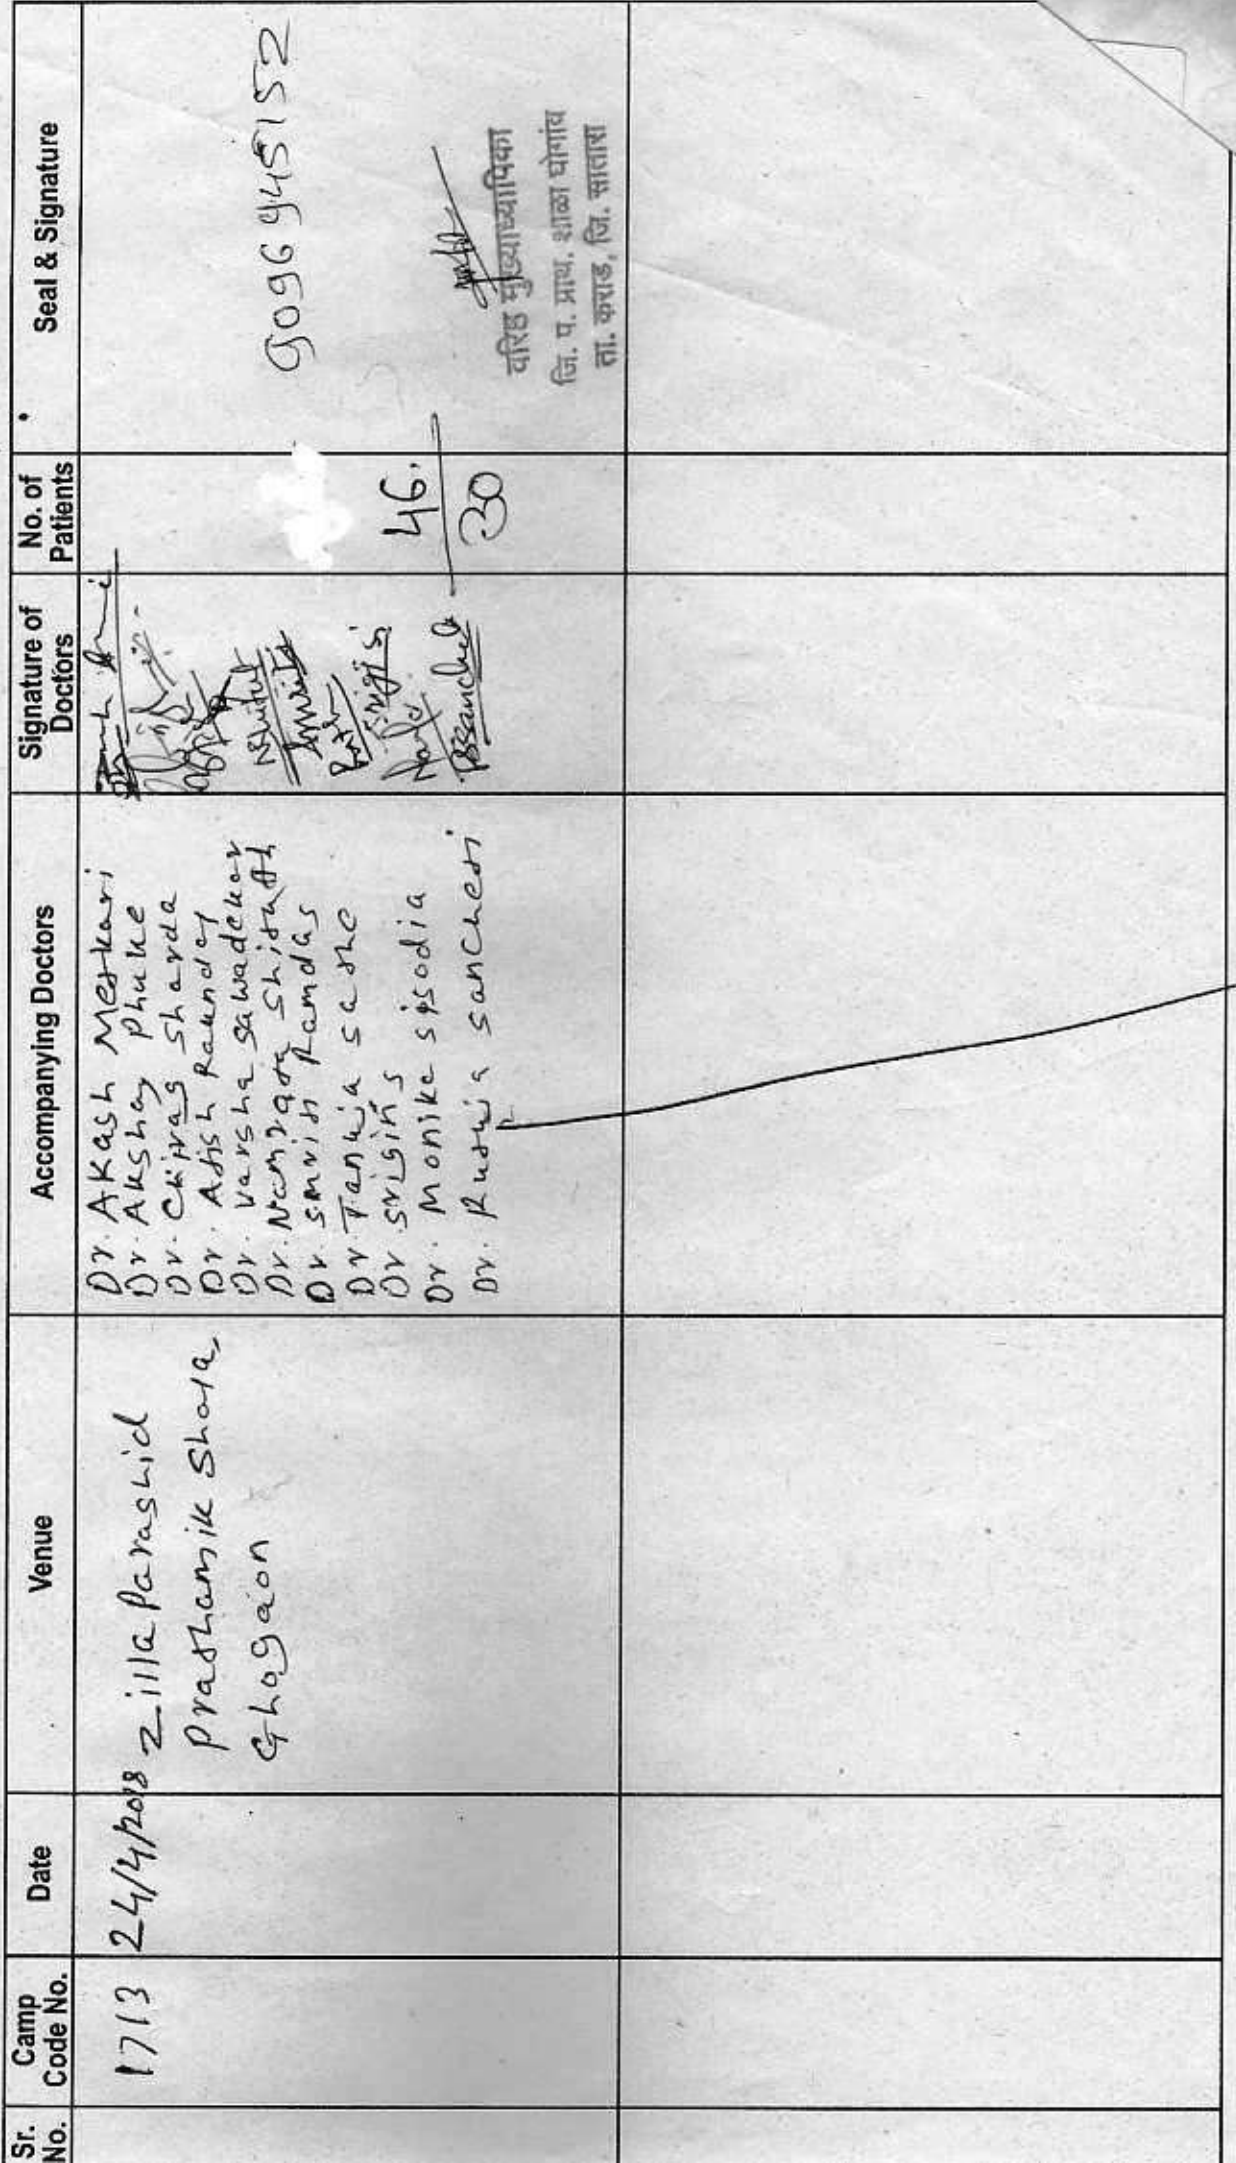 Sr. No.
Camp Code No.
Date
Venue
Accompanying Doctors
Signature of Doctors
No. of Patients
Seal & Signature
1713
24/4/2018
Zilla Parashid
Prathamik Shala,
Ghogaon
Dr. Akash Metkari
Dr. Akshay Phuke
Dr. Chirag Sharda
Dr. Atish Randey
Dr. Varsha Sawadekar
Dr. Namrata Shirsath
Dr. Smriti Ramdas
Dr. Tanuja Sathe
Dr. Srigin S
Dr. Monike Sisodia
Dr. Rutuja Sancheti
Amrita
Rssancheti
46.
30
9096945152
वरिष्ठ मुख्याध्यापिका
जि. प. प्राथ. शाळा घोगांव
ता. कराड, जि. सातारा